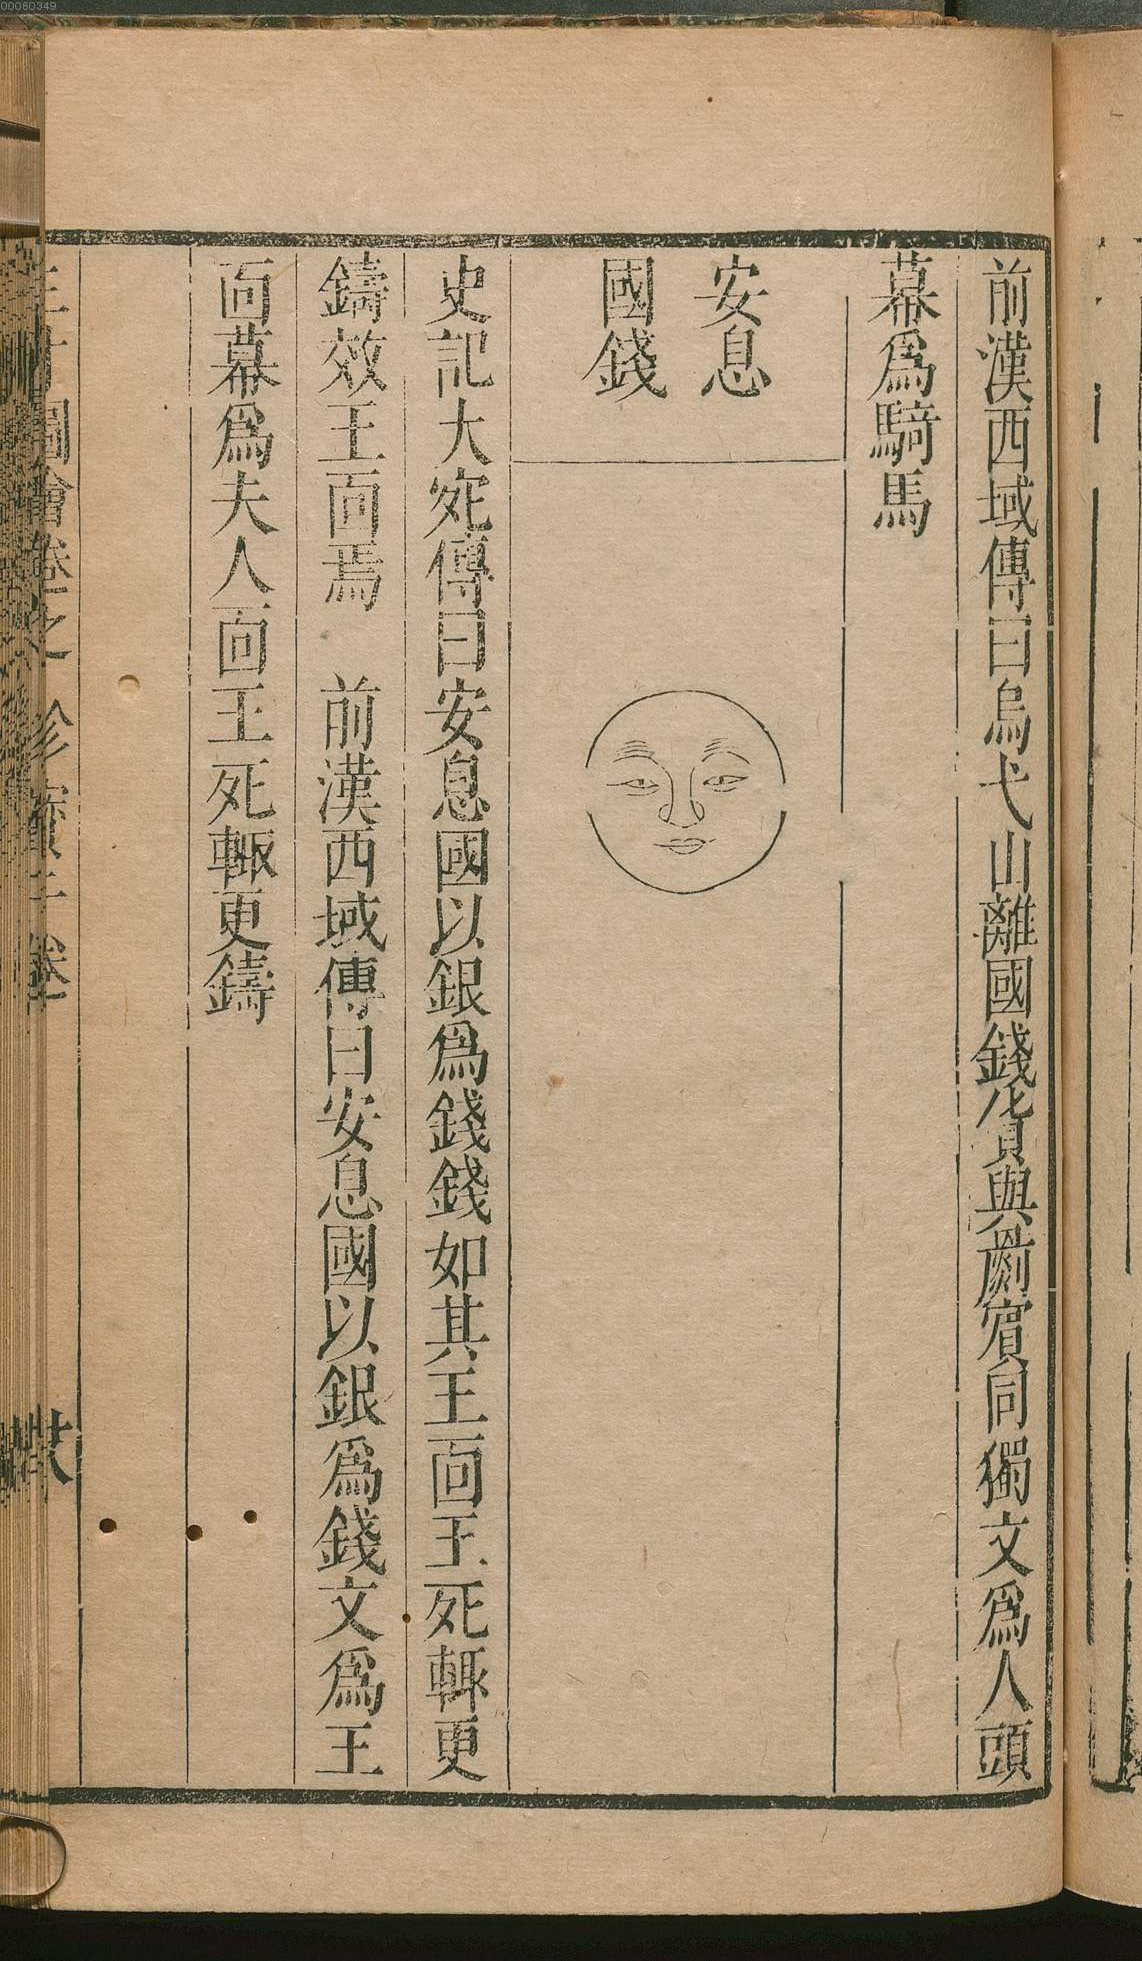 00060349
前漢西域傳曰烏弋山離國錢貨與罽賔同獨文爲人頭
幕爲騎馬
安息
國錢
史記大宛傳曰安息國以銀爲錢錢如其王面王死輙更
鑄效王面焉　前漢西域傳曰安息國以銀爲錢文爲王
面幕爲夫人面王死輙更鑄
三才圖會卷之 珍寶一卷